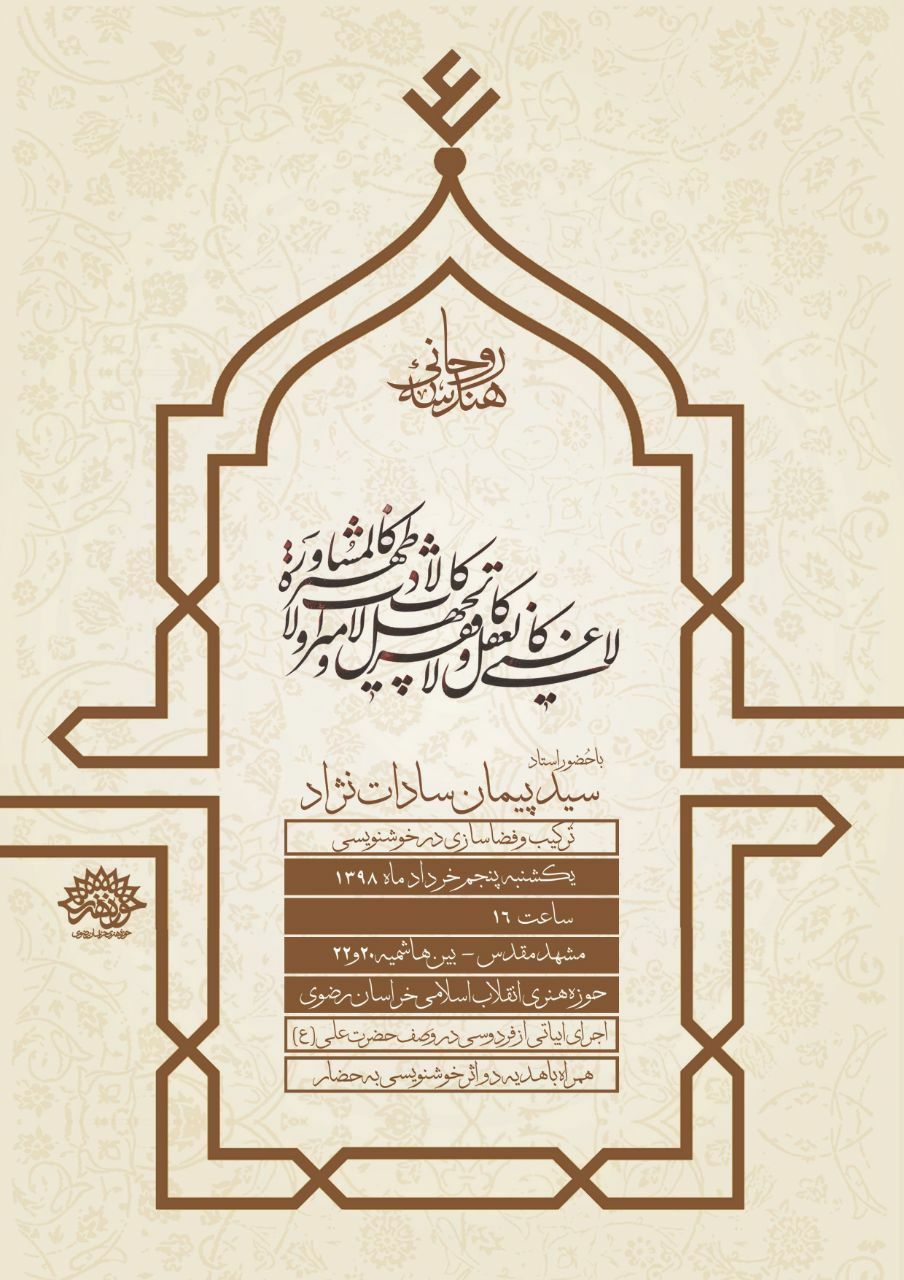 هندسهٔ
روحانی
لا غنی کالعقل و لا فقر کالجهل و لا میراث کالادب و لا ظهیر کالمشاورة
با حضور استاد
سید پیمان سادات نژاد
ترکیب و فضاسازی در خوشنویسی
یکشنبه پنجم خرداد ماه ۱۳۹۸
ساعت ۱۶
مشهد مقدس - بین هاشمیه ۲۰ و ۲۲
حوزه هنری انقلاب اسلامی خراسان رضوی
اجرای ابیاتی از فردوسی در وصف حضرت علی (ع)
همراه با هدیه دو اثر خوشنویسی به حضار
حوزه هنری
حوزه هنری خراسان رضوی